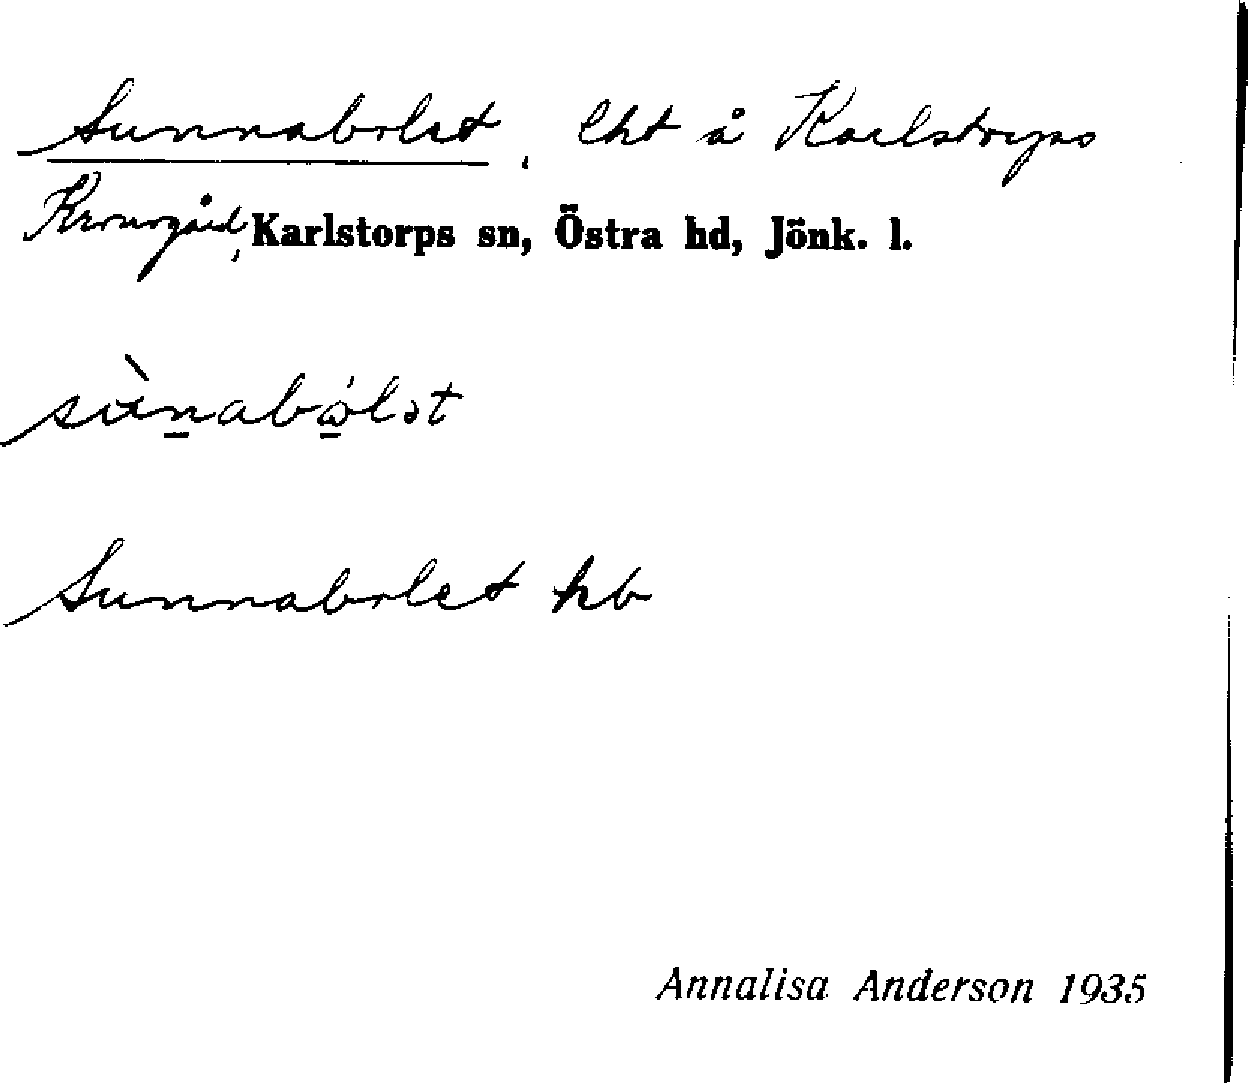 Sunnabolet, lht å Karlstorps
Kronogård, Karlstorps sn, Östra hd, Jönk. l.
sùnabώ̲lət
Sunnabolet hb
Annalisa Anderson 1935